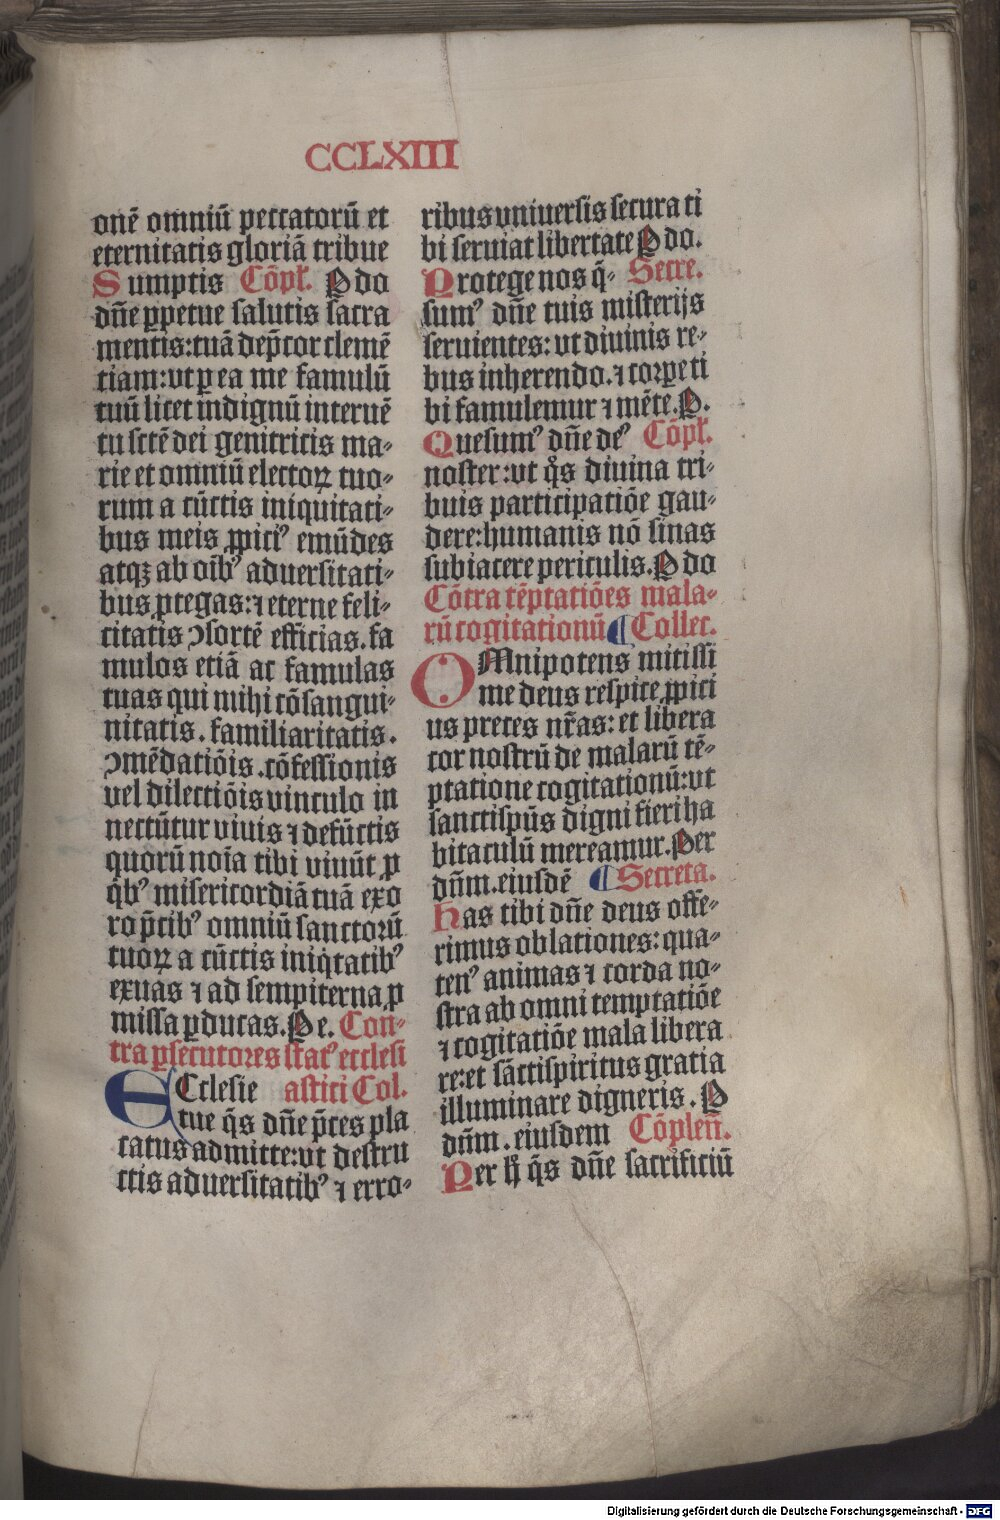 CCLXIII
onē omniū peccatorū et
eternitatis gloriā tribue
Sumptis Cōpl. P do
dn̄e ꝑpetue salutis sacra
mentis: tuā dep̄cor clemē
tiam: vt ꝑ ea me famulū
tuū licet indignū interuē
tu sctē dei genitricis ma⸗
rie et omniū electoꝝ tuo⸗
rum a cūctis iniquitati⸗
bus meis ꝓpiciꝰ emūdes
atqꝫ ab oībꝰ aduersitati⸗
bus ꝓtegas: ⁊ eterne feli⸗
citatis ꝯsortē efficias. fa
mulos etiā ac famulas
tuas qui mihi cōsangui⸗
nitatis. familiaritatis.
ꝯmēdatiōis. cōfessionis
vel dilectiōis vinculo in
nectūtur viuis ⁊ defūctis
quorū noīa tibi viuūt ꝑ
q̄bꝰ misericordiā tuā exo
ro p̄cibꝰ omniū sanctorū
tuoꝝ a cūctis iniq̇tatibꝰ
exuas ⁊ ad sempiterna ꝓ
missa ꝑducas. Pe. Con⸗
tra ꝑsecutores statꝰ ecclesi
ECclesie astici Col.
tue q̄s dn̄e p̄ces pla
catus admitte: vt destru
ctis aduersitatibꝰ ⁊ erro⸗
ribus vniuersis secura ti
bi seruiat libertate P do.
Protege nos q̄⸗ Secre.
sumꝰ dn̄e tuis misterijs
seruientes: vt diuinis re⸗
bus inherendo. ⁊ corꝑe ti
bi famulemur ⁊ mēte. P.
Quesumꝰ dn̄e deꝰ Cōpl.
noster: vt q̊s diuina tri⸗
buis participatiōe gau⸗
dere: humanis nō sinas
subiacere periculis. P do
Cōtra tēptatiōes mala⸗
rū cogitationū ¶ Collec.
OMnipotens mitissi
me deus respice ꝓpici
us preces nr̄as: et libera
cor nostrū de malarū tē⸗
ptatione cogitationū: vt
sanctispūs digni fieri ha
bitaculū mereamur. Per
dūm. eiusdē ¶ Secreta.
Has tibi dn̄e deus offe⸗
rimus oblationes: qua⸗
tenꝰ animas ⁊ corda no⸗
stra ab omni temptatiōe
⁊ cogitatiōe mala libera
re: et sāctispiritus gratia
illuminare digneris. P
dūm. eiusdem Cōplen̄.
Per h̄ q̄s dn̄e sacrificiū
Digitalisierung gefördert durch die Deutsche Forschungsgemeinschaft - DFG